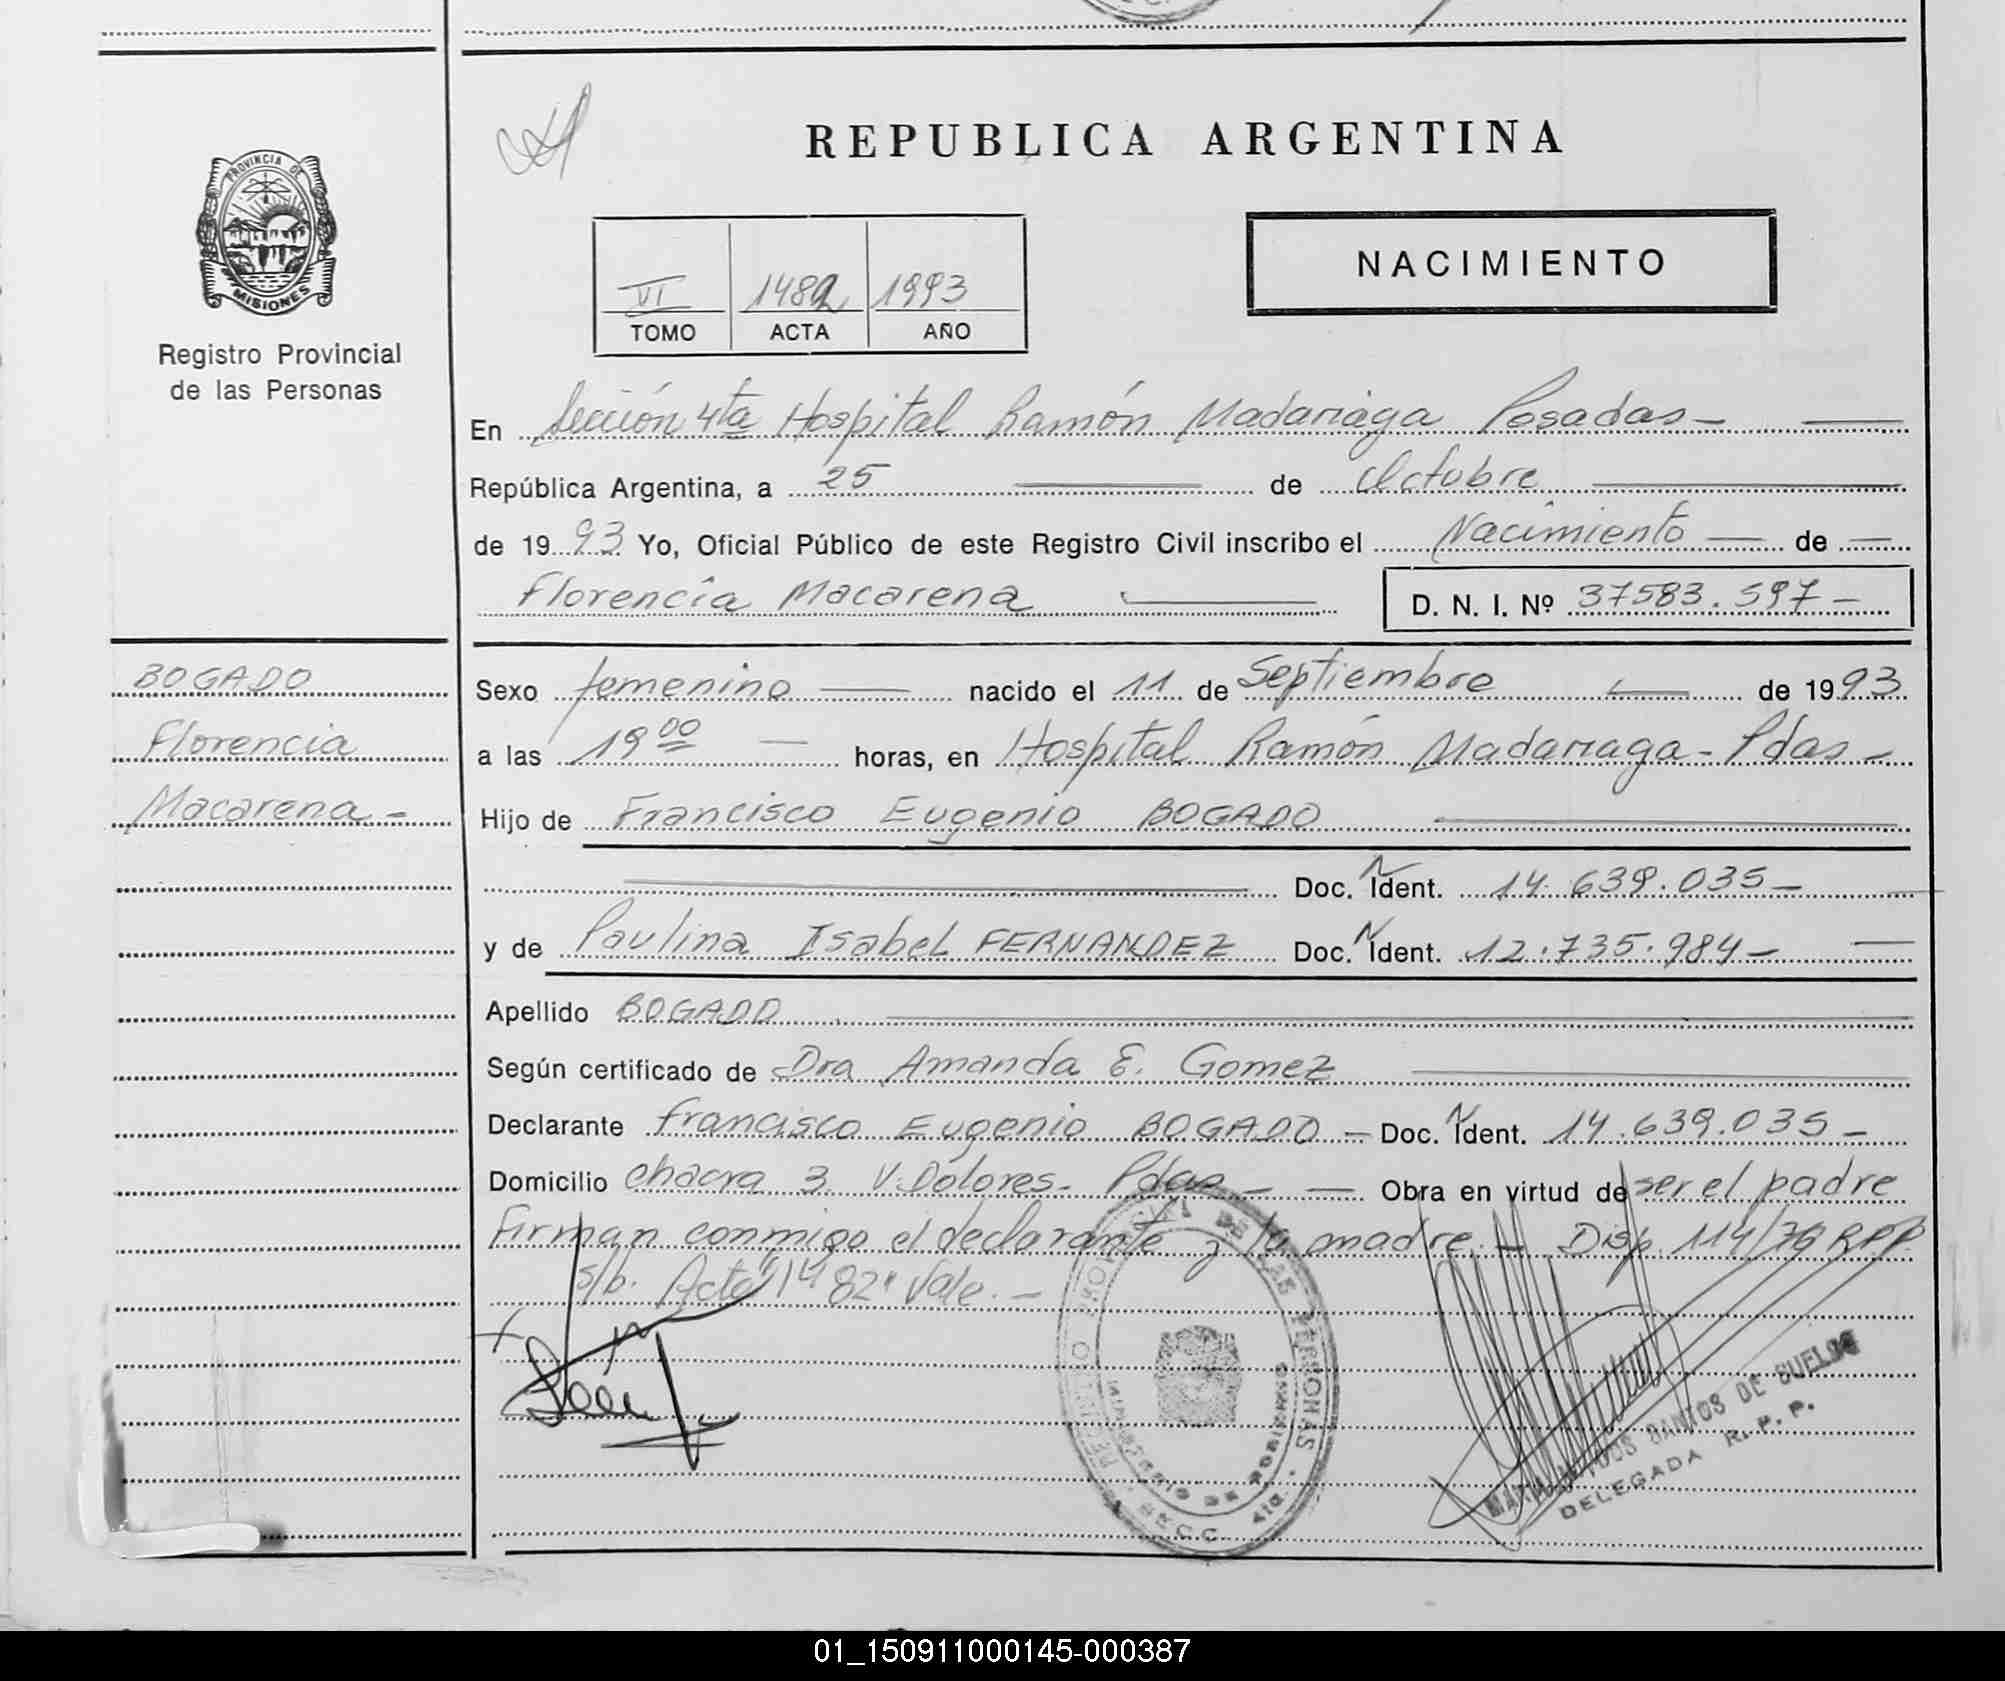 REPUBLICA ARGENTINA
PROVINCIA DE
MISIONES
Registro Provincial
de las Personas
VI 1482 1993
TOMO ACTA AÑO
NACIMIENTO
En Sección 4ta Hospital Ramón Madariaga Posadas -
República Argentina, a 25 de Octubre
de 1993 Yo, Oficial Público de este Registro Civil inscribo el Nacimiento de
Florencia Macarena D. N. I. Nº 37583.597-
BOGADO
Florencia
Macarena -
Sexo femenino nacido el 11 de Septiembre de 1993
a las 19 00 horas, en Hospital Ramón Madariaga - Pdas -
Hijo de Francisco Eugenio BOGADO
Doc. N Ident. 14.639.035-
y de Paulina Isabel FERNANDEZ Doc. N Ident. 12.735.984-
Apellido BOGADO
Según certificado de Dra Amanda E. Gomez
Declarante Francisco Eugenio BOGADO - Doc. N Ident. 14.639.035-
Domicilio chacra 3 V. Dolores - Pdas - Obra en virtud de ser el padre
Firman conmigo el declarante y la madre. - Disp. 114/79 R.P.P.
s/b. Acta "1482" Vale. -
REGISTRO PROVINCIAL DE LAS PERSONAS
SANTOS DE
DELEGADA R. P. P.
01_150911000145-000387